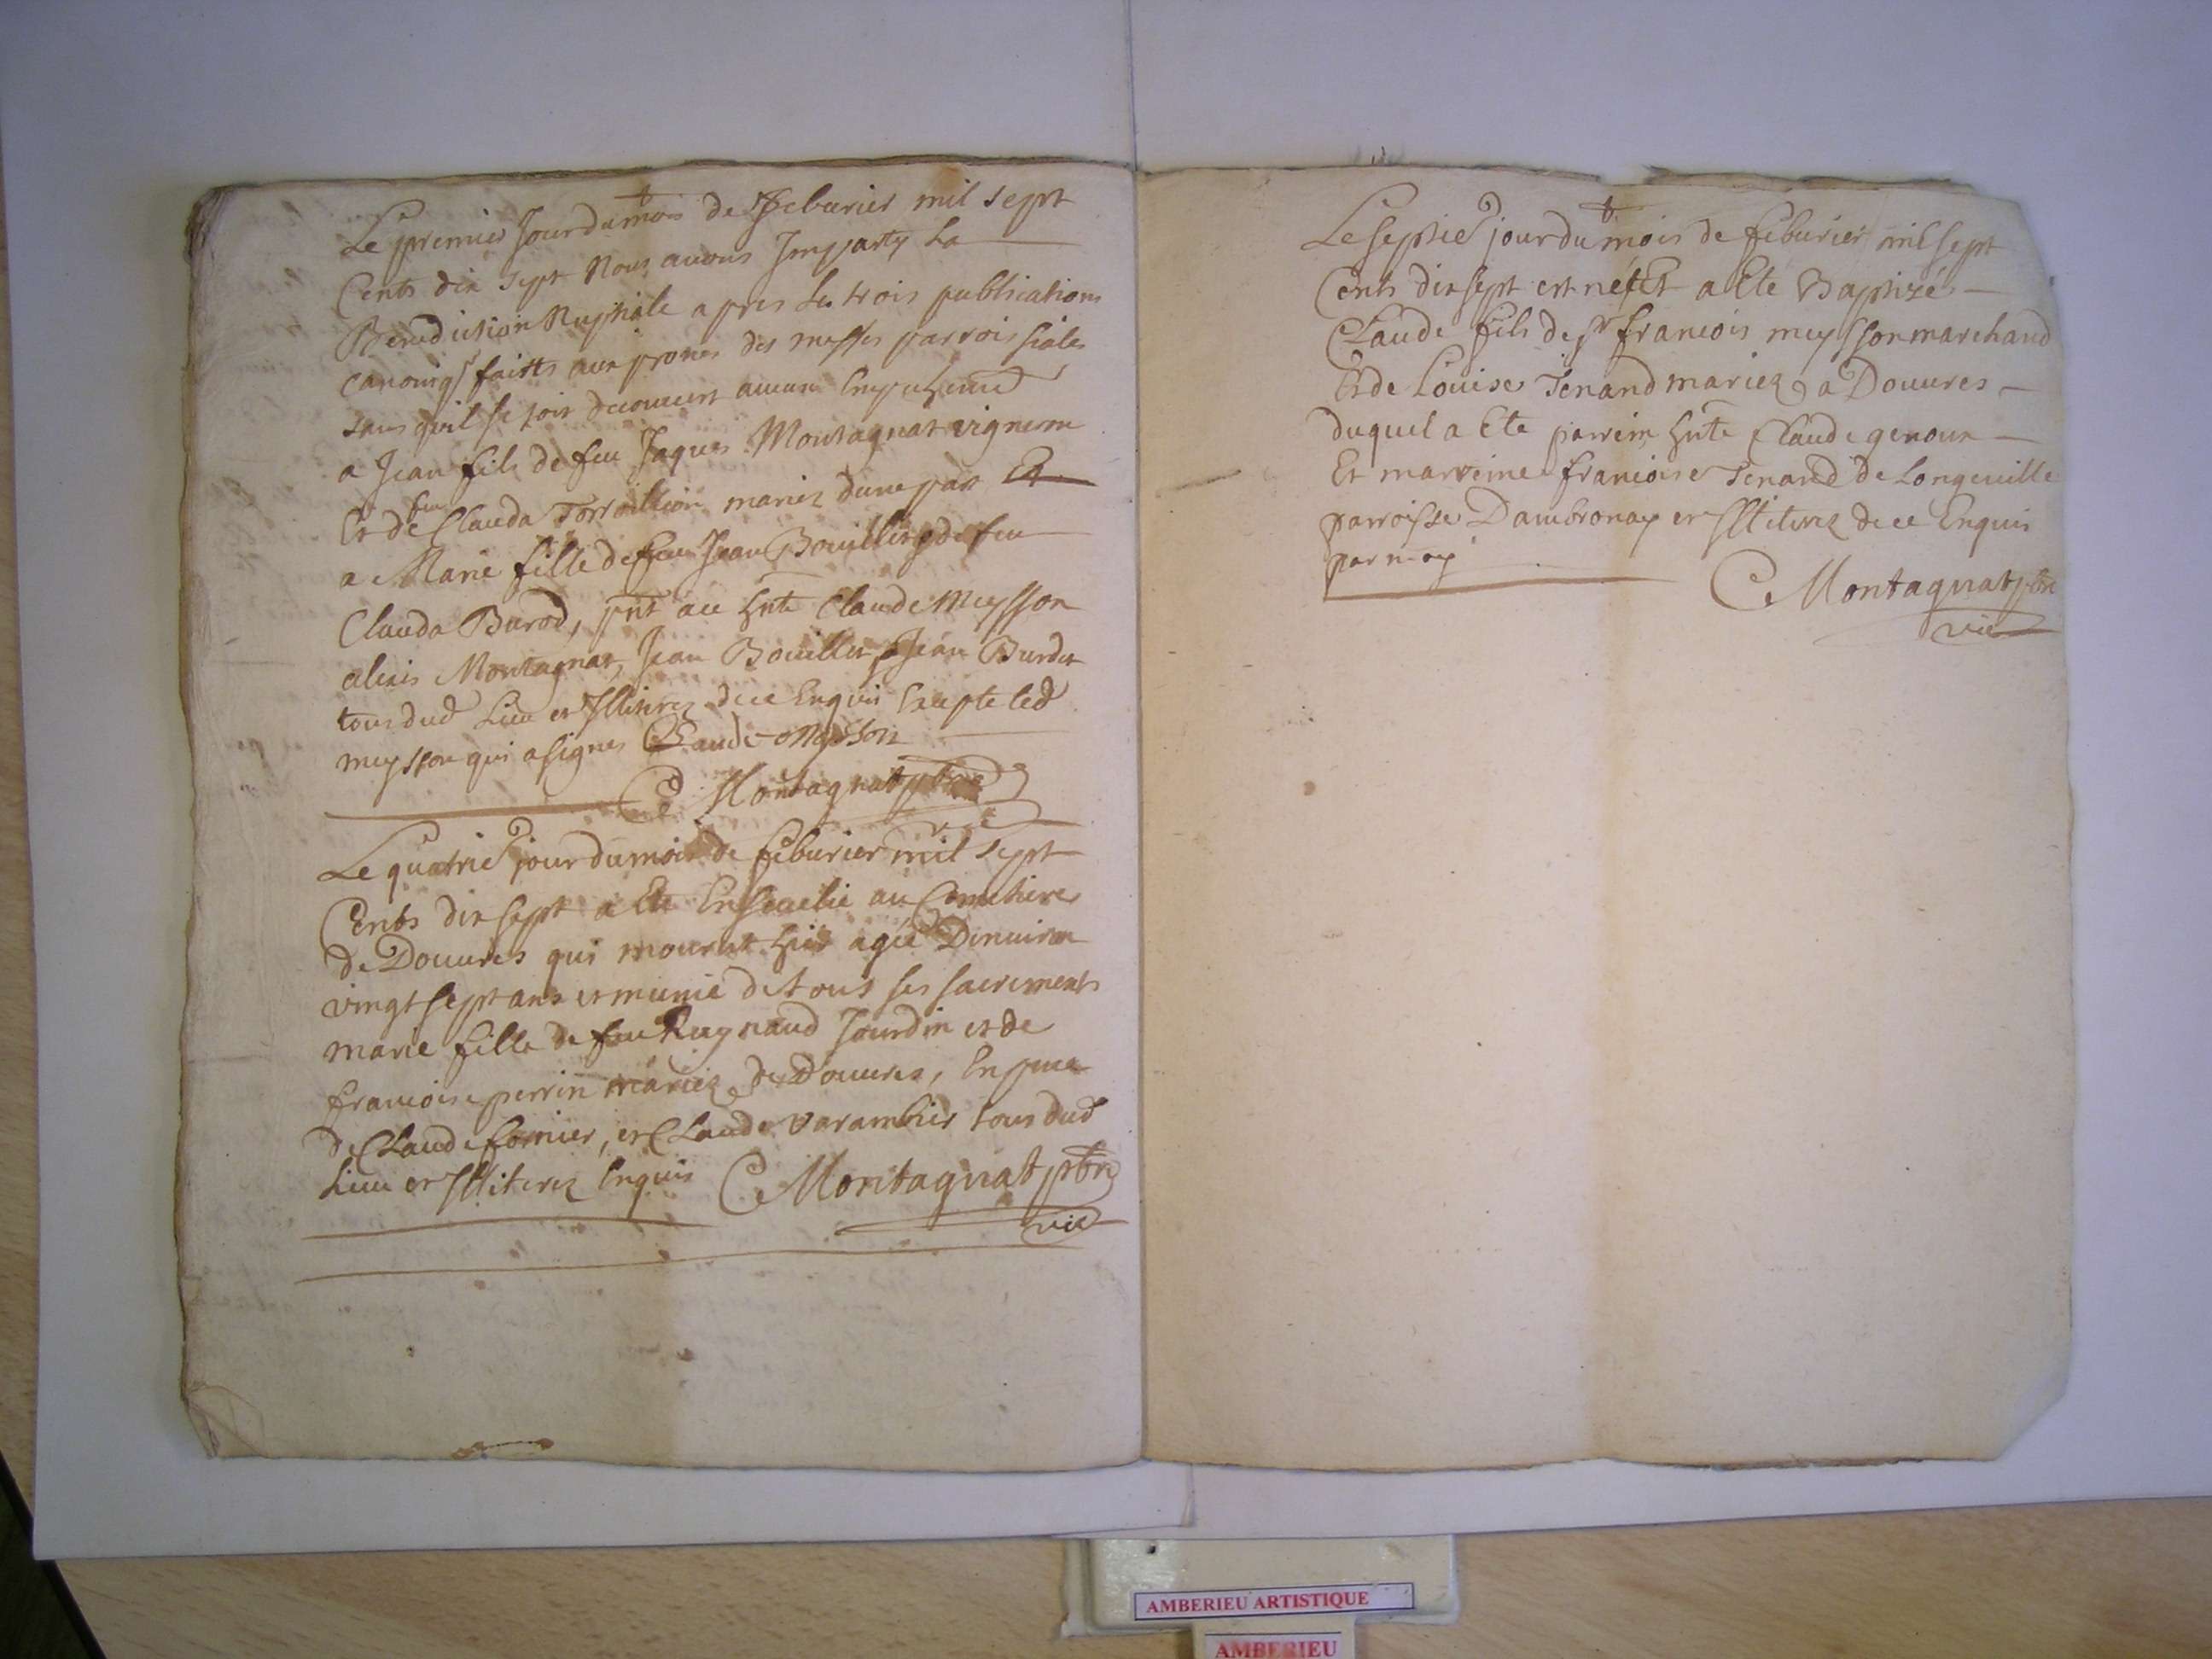 Le premier Jour du mois de Feburier mil sept
Cents dix sept Nous auons Imparty La
Benediction Nuptiale apres les trois publications
canoniqs faitts aux prones des messes parroissiales
sans quil se soit decouuert aucun Empechemt
a Jean fils de feu Jaques Montagnat vigneron
Et de feu Clauda Torraillion mariez dune part Et
a Marie fille de feu Jean Bouillet & de feu
Clauda Burod, pnt au hnte Claude Meysson
aliais Montagnat, Jean Bouillet, Jean Burdet
tous dud Lieu et Illiterez de ce Enquis Excepte led
meysson qui a signes Claude Messon
C Montagnat pbre
vic
Le quatrie jour du mois de feburier mil sept
Cents dix sept a Ete Enseuelie au Cemetiere
de Douures qui mourut hier agée Denuiron
vingt sept ans et munie de tous ses sacrements
marie fille de feu Reynaud Jourdin et de
francoise perrin mariez de Douures, En pnce
de Claude fornier, et Claude varambier tous dud
Lieu et Illiterez Enquis C Montagnat pbre
vic
Le septie jour du mois de feburier mil sept
Cents dix sept est né et a Ete Baptizé
Claude fils de sr francois meysson marchand
Et de Louise Tenand mariez a Douures
duquel a Ete parrein hnte Claude genoux
Et marreine francoise Tenand de Longeuille
parroisse Dambronay et Illiterez de ce Enquis
par moy
C Montagnat pbre
vic
AMBERIEU ARTISTIQUE
AMBERIEU